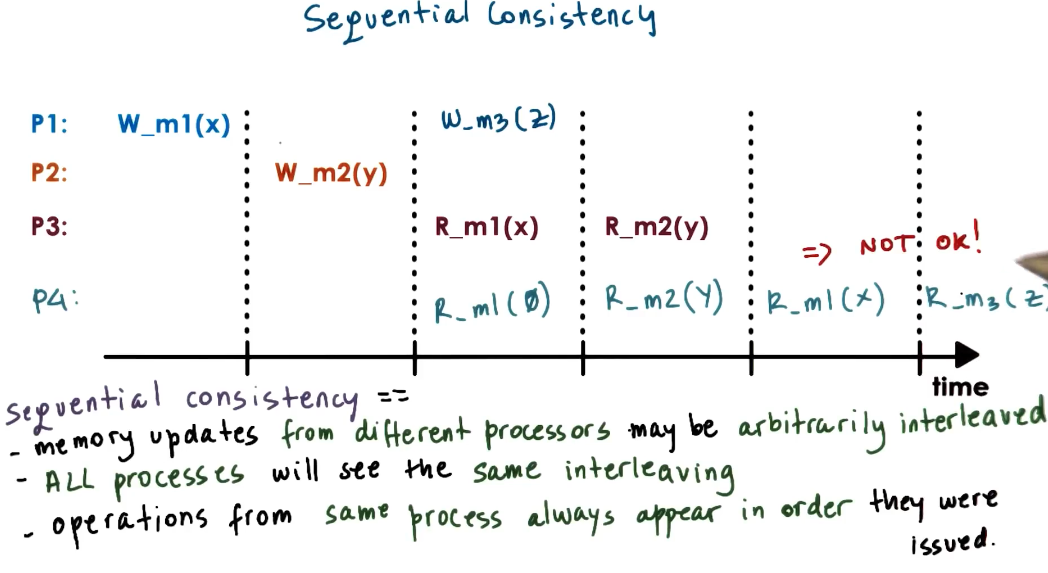 Sequential Consistency
P1: W_m1(x) W_m3(z)
P2: W_m2(y)
P3: R_m1(x) R_m2(y)
=> NOT OK!
P4: R_m1(0) R_m2(y) R_m1(x) R_m3(z)
time
sequential consistency ==
- memory updates from different processors may be arbitrarily interleaved
- ALL processes will see the same interleaving
- operations from same process always appear in order they were
issued.